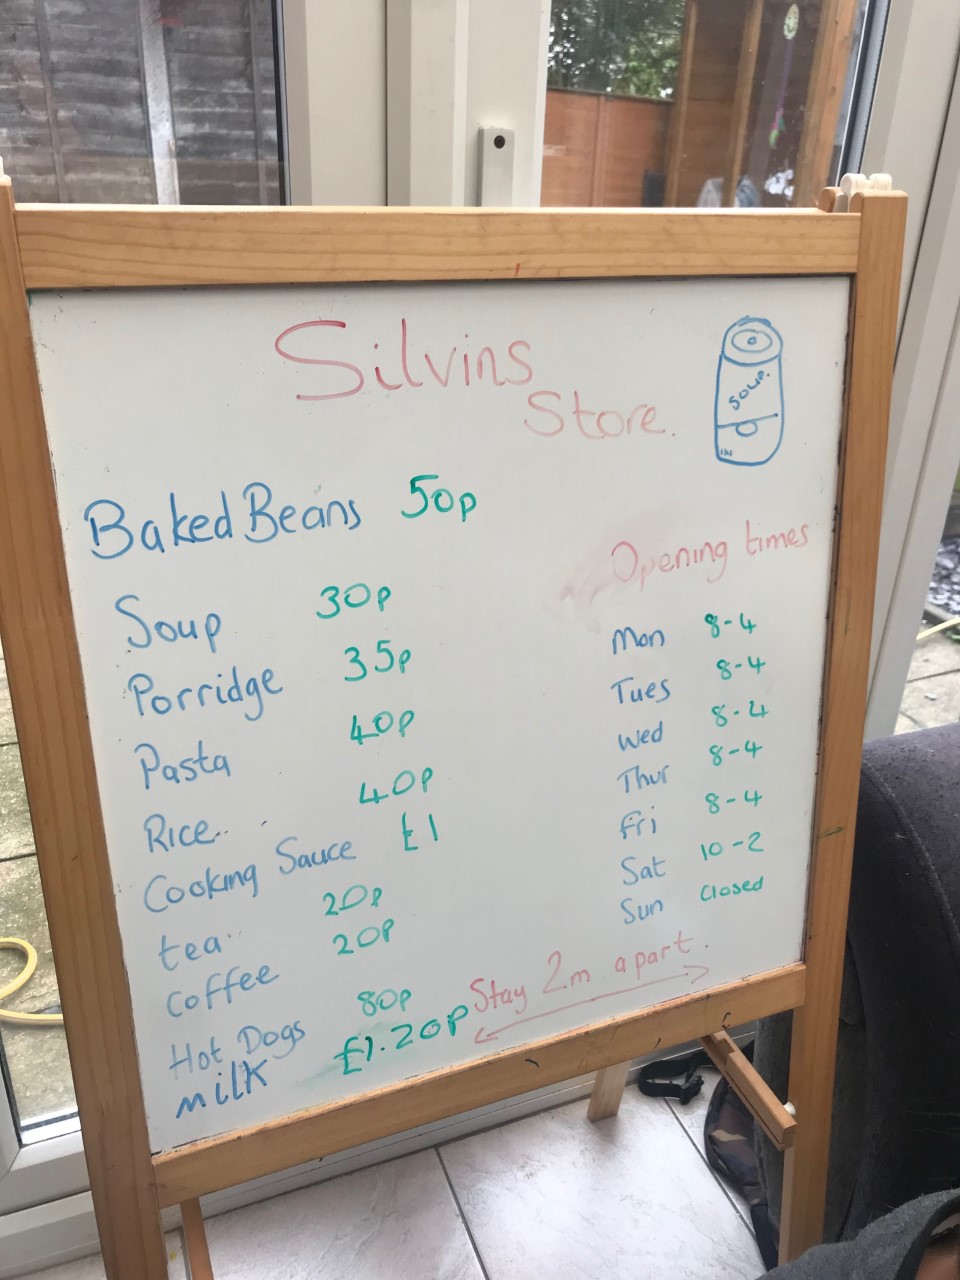 Silvins
Store.
soup.
Baked Beans 50p
Soup 30p
Porridge 35p
Pasta 40p
Rice 40p
Cooking Sauce £1
tea 20p
Coffee 20p
Hot Dogs 80p
milk £1.20p
Opening times
Mon 8-4
Tues 8-4
Wed 8-4
Thur 8-4
Fri 8-4
Sat 10-2
Sun Closed
Stay 2m apart.